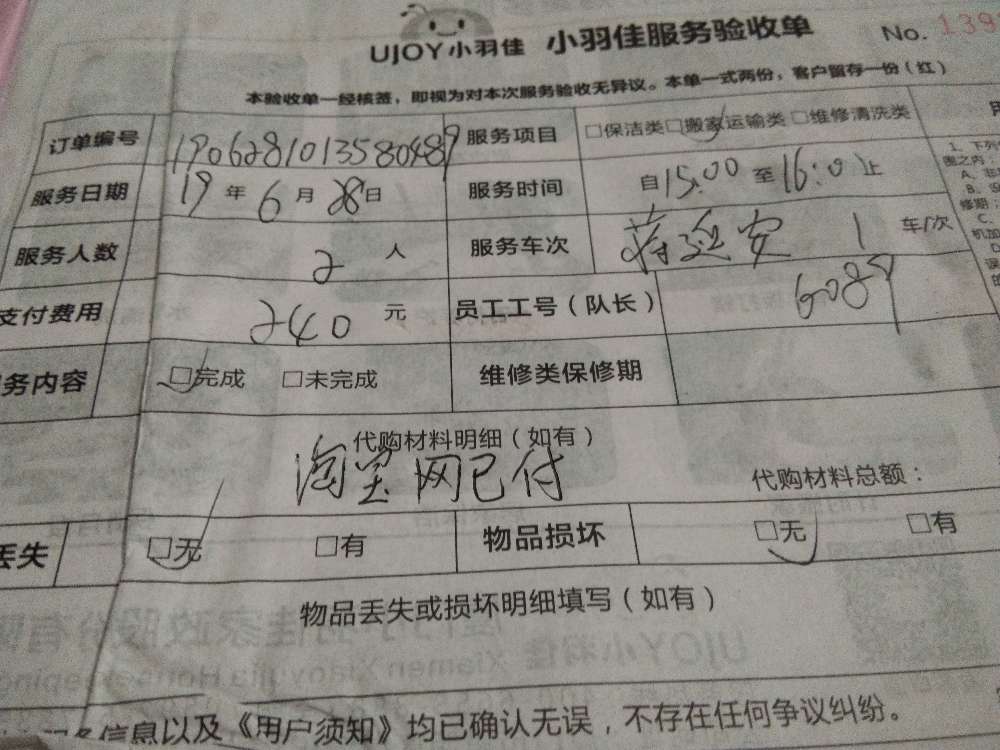 UJOY小羽佳 小羽佳服务验收单 No. 139
本验收单一经核签，即视为对本次服务验收无异议。本单一式两份，客户留存一份（红）
订单编号 190628101358048 服务项目 □保洁类□搬家运输类 □维修清洗类
服务日期 19 年 6 月 28 日 服务时间 自15:00 至16:0 止
服务人数 2 人 服务车次 蒋延安 1 车/次
支付费用 240 元 员工工号（队长） 6089
务内容 □完成 □未完成 维修类保修期
代购材料明细（如有）
淘宝网已付 代购材料总额：
丢失 □无 □有 物品损坏 □无 □有
物品丢失或损坏明细填写（如有）
信息以及《用户须知》均已确认无误，不存在任何争议纠纷。
1、下列
围之内：
A、非
B、
修期；
C、
机加
D
误
的